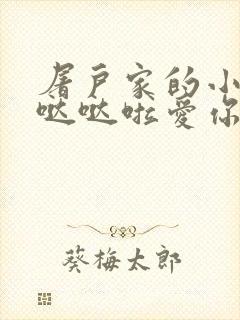 屠户家的小
哒哒啦爱你
葵梅太郎